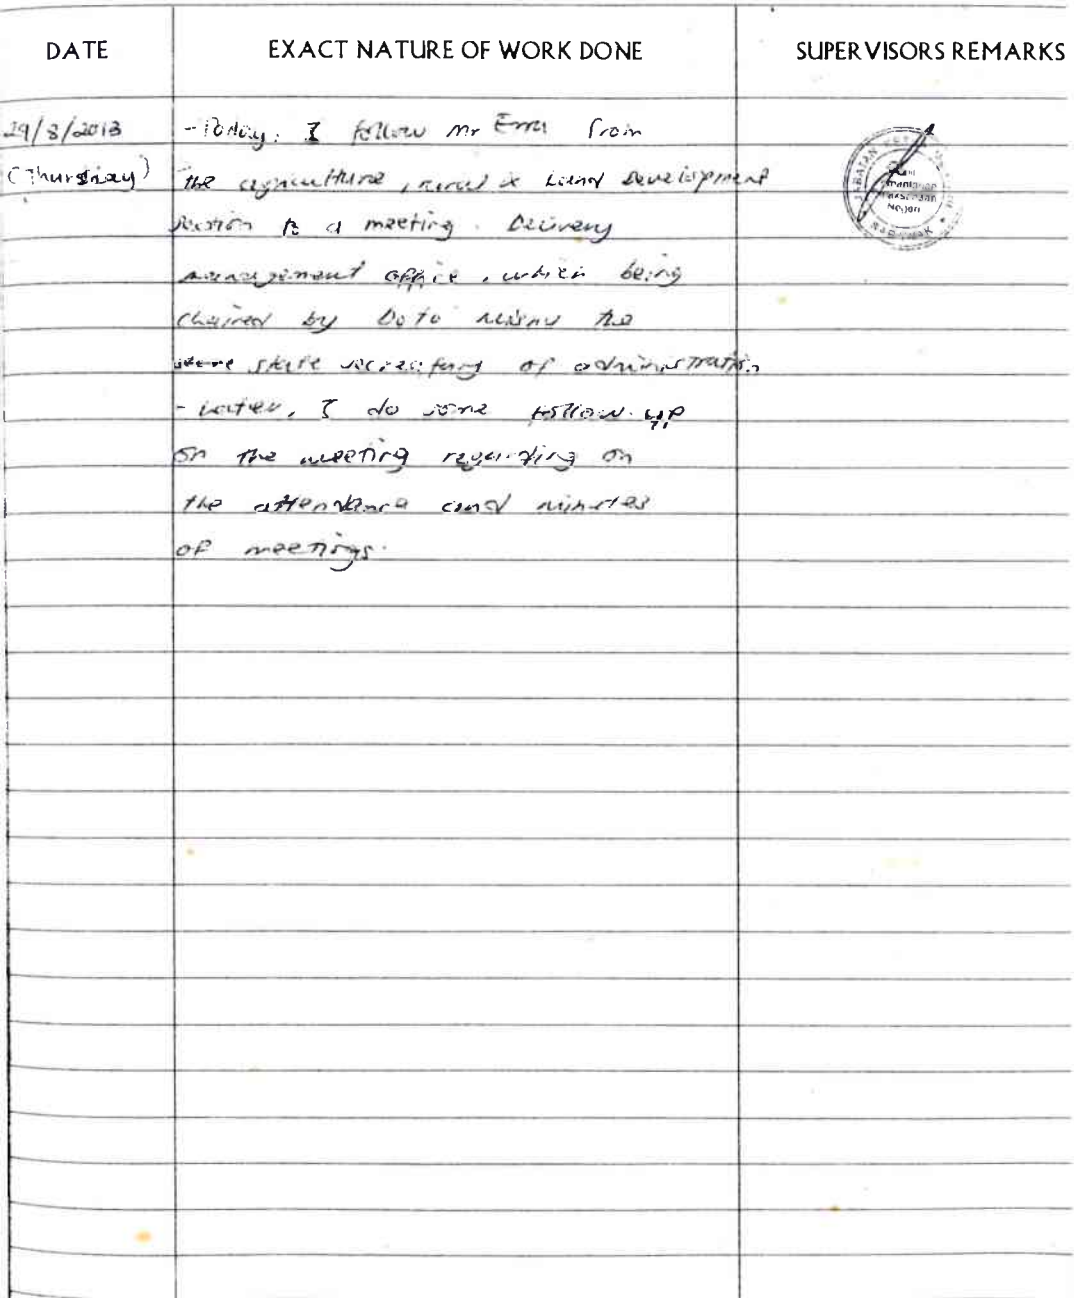 DATE EXACT NATURE OF WORK DONE SUPERVISORS REMARKS
29/8/2013 - Today, I follow Mr from
(Thursday) the agriculture, rural & Land Development
section to a meeting. Delivery
management office, which being
chaired by Dato the
state secreatary of administration
- Later, I do some follow up
on the meeting regarding on
the attendance and minutes
of meetings.
JABATAN
Negeri
SARAWAK